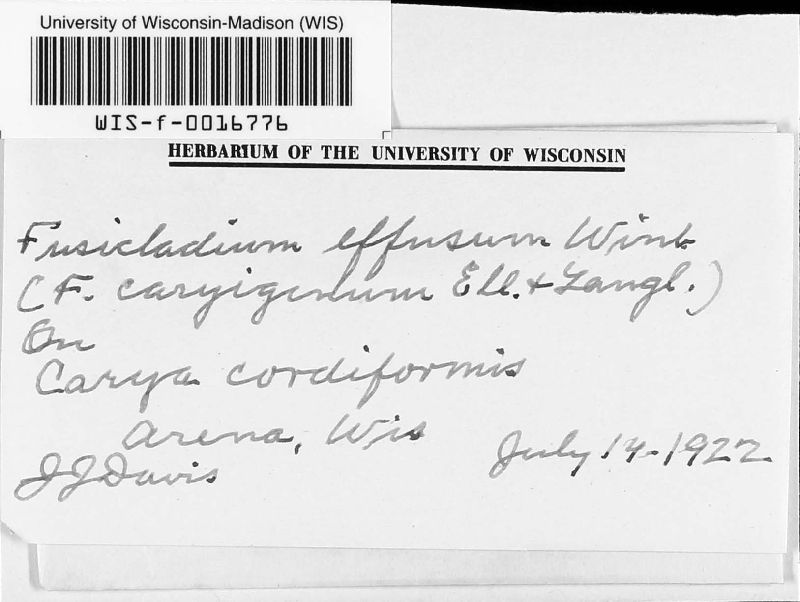 University of Wisconsin-Madison (WIS)
WIS-f-0016776
HERBARIUM OF THE UNIVERSITY OF WISCONSIN
Fusicladium effusum Wint
(F. caryigenum Ell. + Langl.)
On
Carya cordiformis
Arena, Wis
July 14-1922
JJDavis